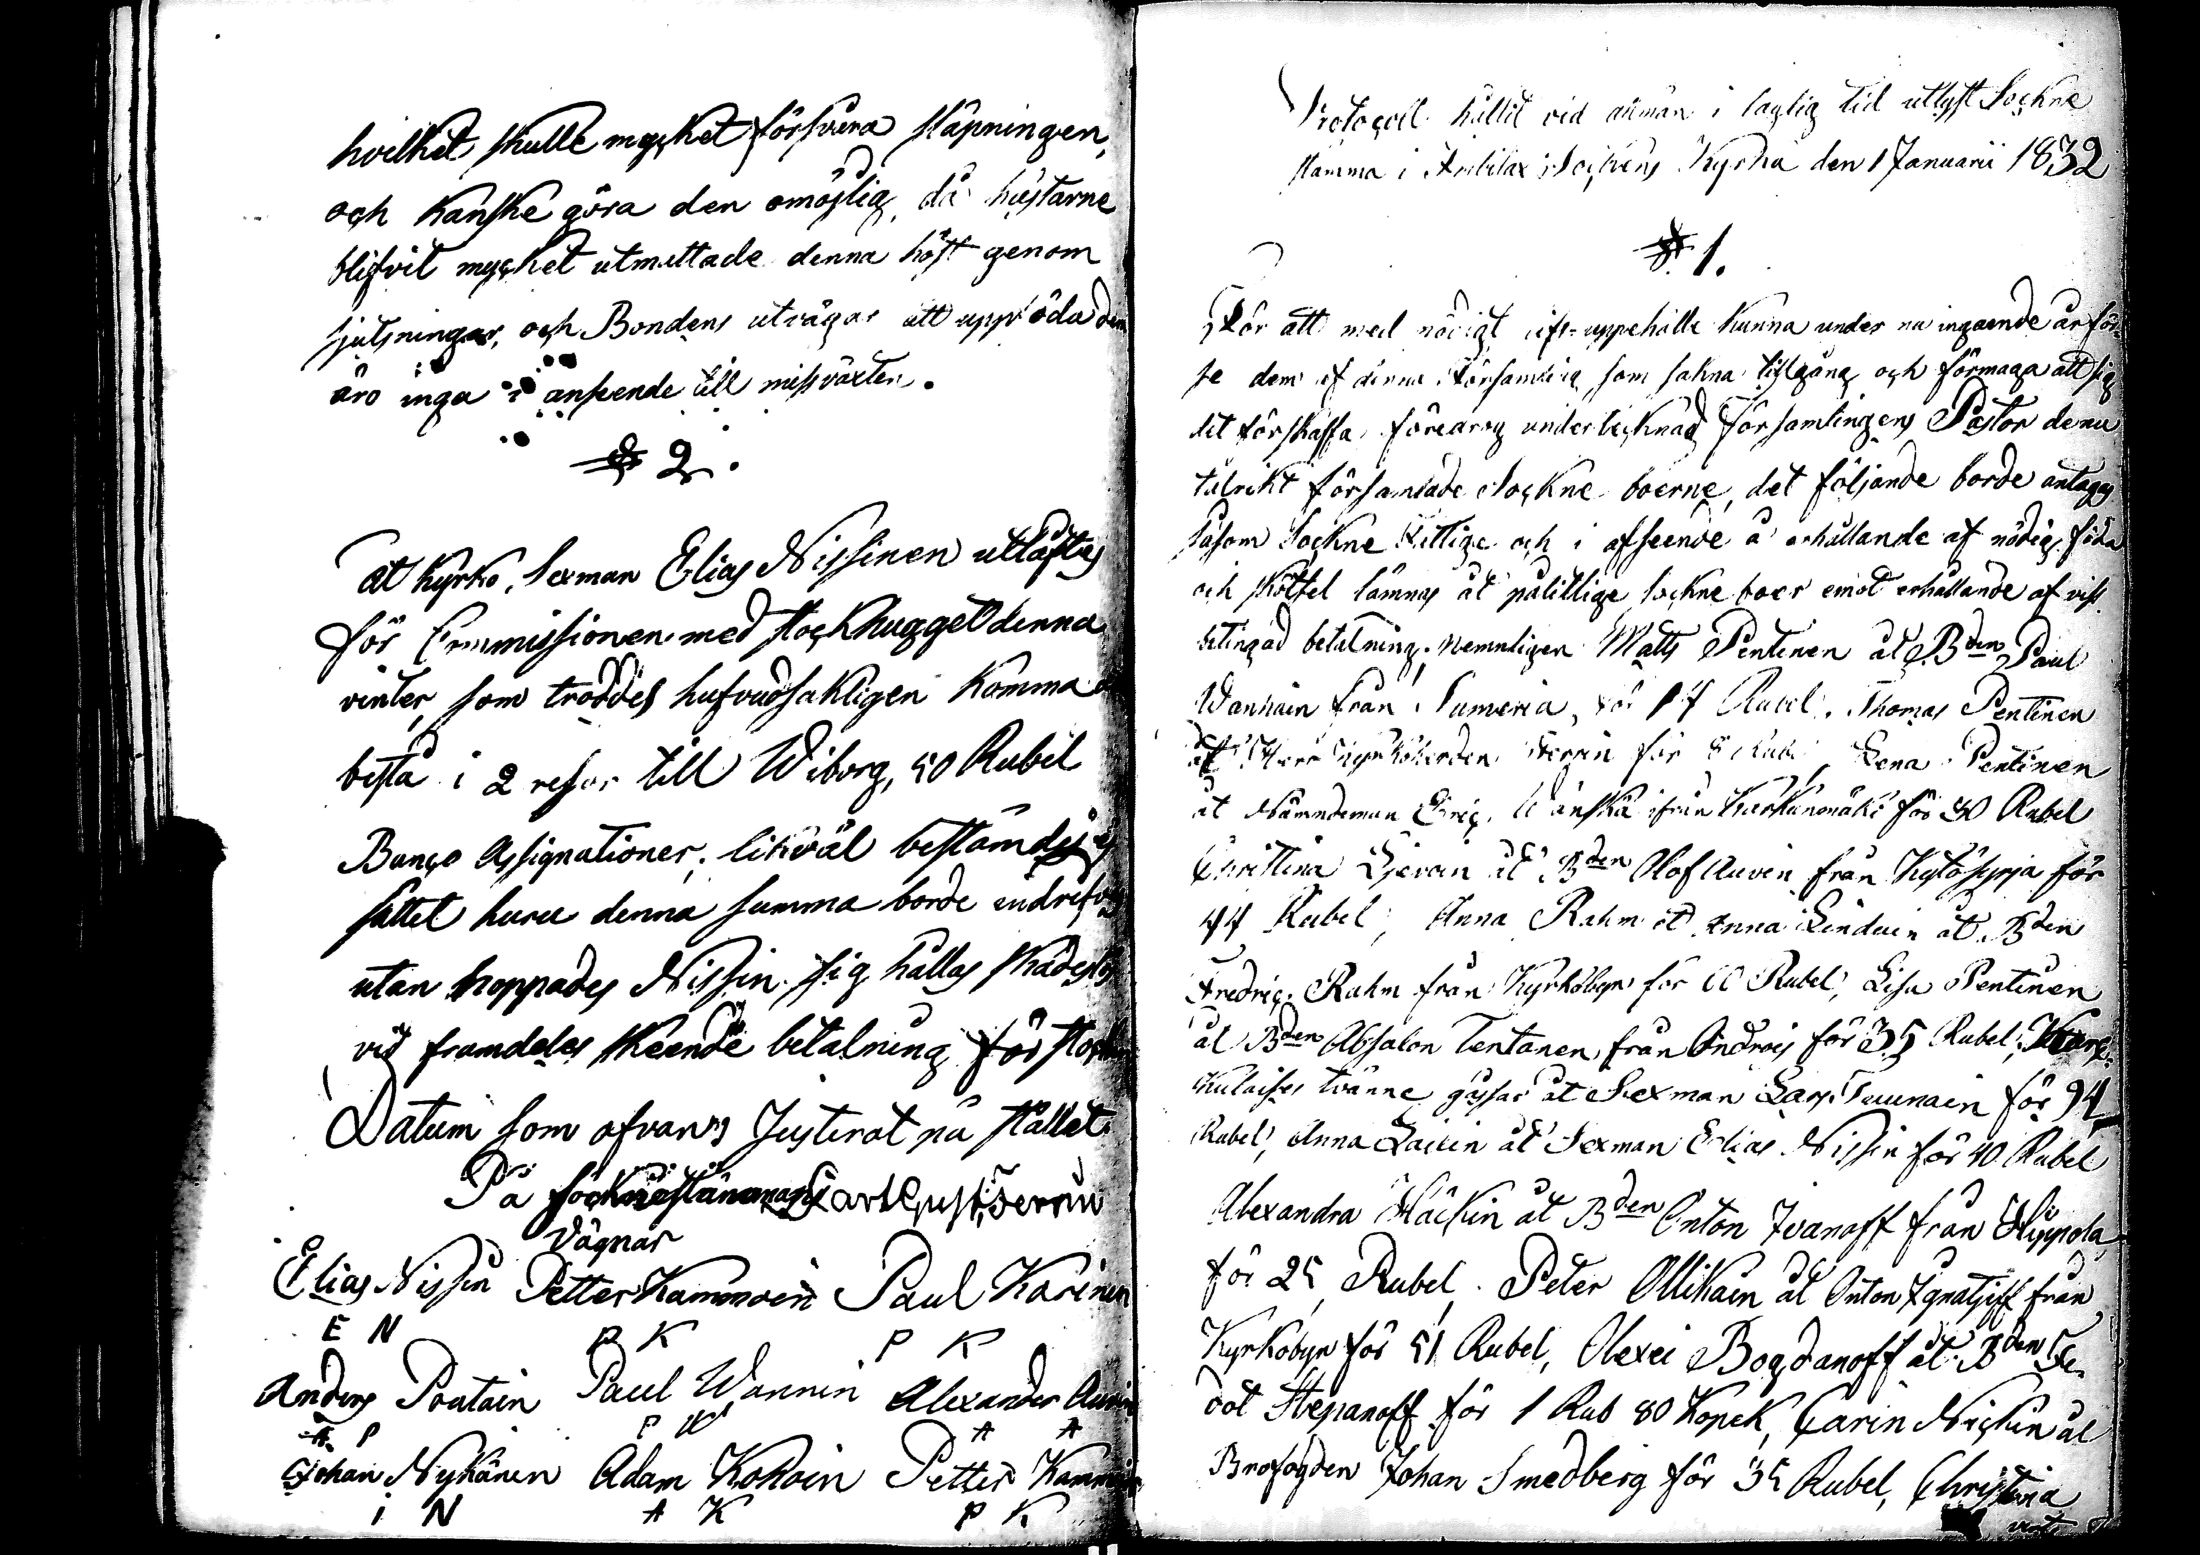 hvilket skulle mycket försvåra släpningen,
och kanske göra den omöjlig, då hästarne
blifvit mycket utmattade denna höst genom
skjutsningar, och Bondens utvägar att uppföda dem
äro inga i anseende till missväxten.
§ 2.
At Kyrko Sexman Elias Nissinen utlåftes
för Commissionen med stockhugget denna
vinter, som troddes hufvudsakligen komma
bestå i 2 resor till Wiborg, 50 Rubel
Banco Assignationer, likväl bestämdes ej
sättet huru denna summa borde indrifvas
utan hoppades Nissin sig hållas skadeslös
vid framdeles skeende betalning för stock
Datum som ofvan. Justerat på stället.
På sockne stämmans Carl Gust. Ferrin
vägnar
Elias Nissin Petter Kammoin Paul Karinen
E N P K P K
Anders Poutain Paul Wannin Alexander Auvin
A P P W A A
Johan Nykänen Adam Kokoin Petter Kammoin
i N A K P K
Protocoll hållit vid allmän i laglig tid utlyst Sockne
stämma i Antilax Sockens Kyrka den 1 Januarii 1832
§ 1.
För att med nödigt lifs-uppehälle kunna under nu ingående år förse
dem af denna Församling som sakna tillgång och förmåga att sig
det förskaffa, föredrog undertecknad Församlingens Pastor de nu
talrikt församlade Sockne boerne, det följande borde antagas
såsom Sockne Fattige och i afseende å erhållande af nödig föda
och skötsel lämnas åt pålitlige Sockne boer emot erhållande af viss
betingad betalning, nemnligen Matts Pentinen åt Bden Paul
Wannain från Rubel, Thomas Pentinen
åt Herr Kyrkoherden Ferrin för Rubel, Lena Pentinen
åt Nämndeman Eric från för 30 Rubel
Christina åt Bden Olof Auvin från Kytösyrja för
44 Rubel, Anna Rahm et Anna åt Bden
Fredric Rahm från Kyrkobyn för Rubel, Lisa Pentinen
åt Bden Absalon Tentanen från för 35 Rubel,
tvänne gossar åt Sexman Lars för 94
Rubel, Anna åt Sexman Elias Nissin för 40 Rubel
Alexandra Häckin åt Bden Anton Ivanoff från
för 25 Rubel. Peter Ollikain åt Anton Ignatjeff från
Kyrkobyn för 51 Rubel, Alexei Bogdanoff åt Bden Fe-
dot Stepanoff för 1 Rub 80 Kopek, Carin åt
Brofogden Johan Smedberg för 35 Rubel, Christina